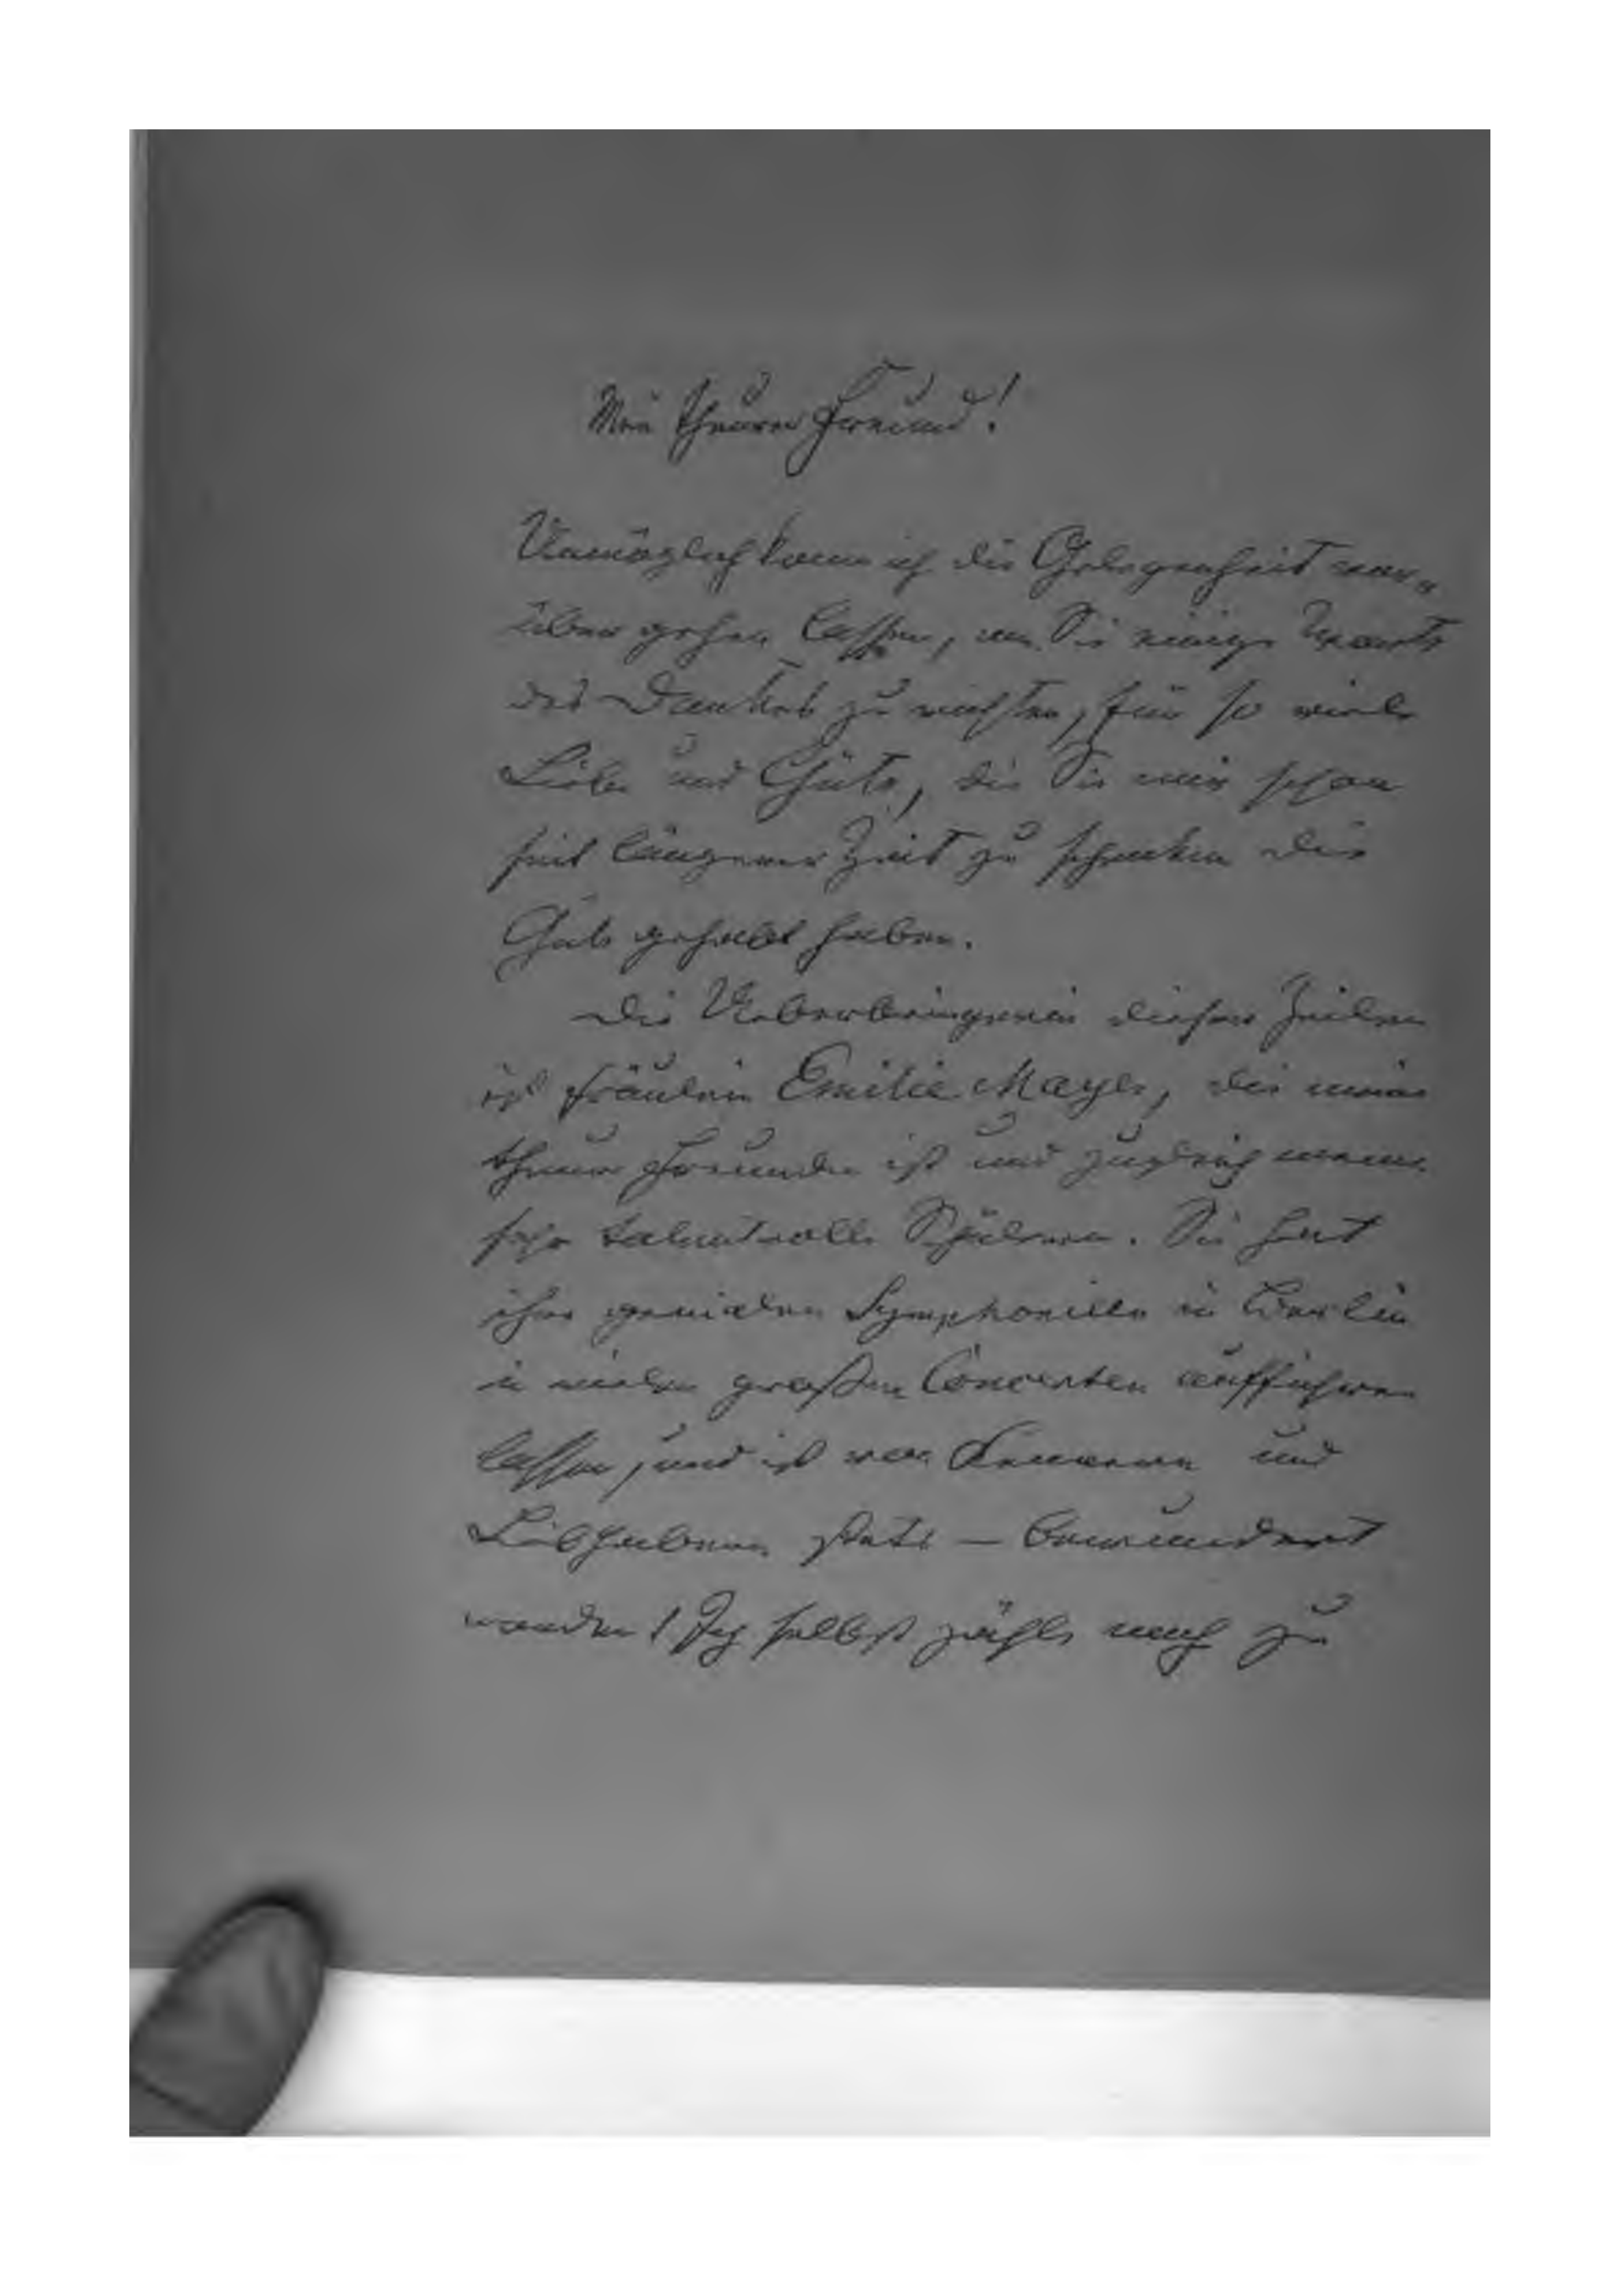 Mein theurer Freund!
Unmöglich kann ich die Gelegenheit vor-
über gehen lassen, an Sie einige Worte
des Dankes zu richten, für so viele
Liebe und Güte, die Sie mir schon
seit längerer Zeit zu schenken die
Güte gehabt haben.
Die Ueberbringerin dieser Zeilen
ist Fräulein Emilie Mayer, die meine
theure Freundin ist und zugleich meine
sehr talentvolle Schülerin. Sie hat
ihre genialen Symphonieen in Berlin
in vielen großen Concerten aufführen
lassen, und ist von Kennern und
Liebhabern stets — bewundert
worden! Ich selbst zähle mich zu